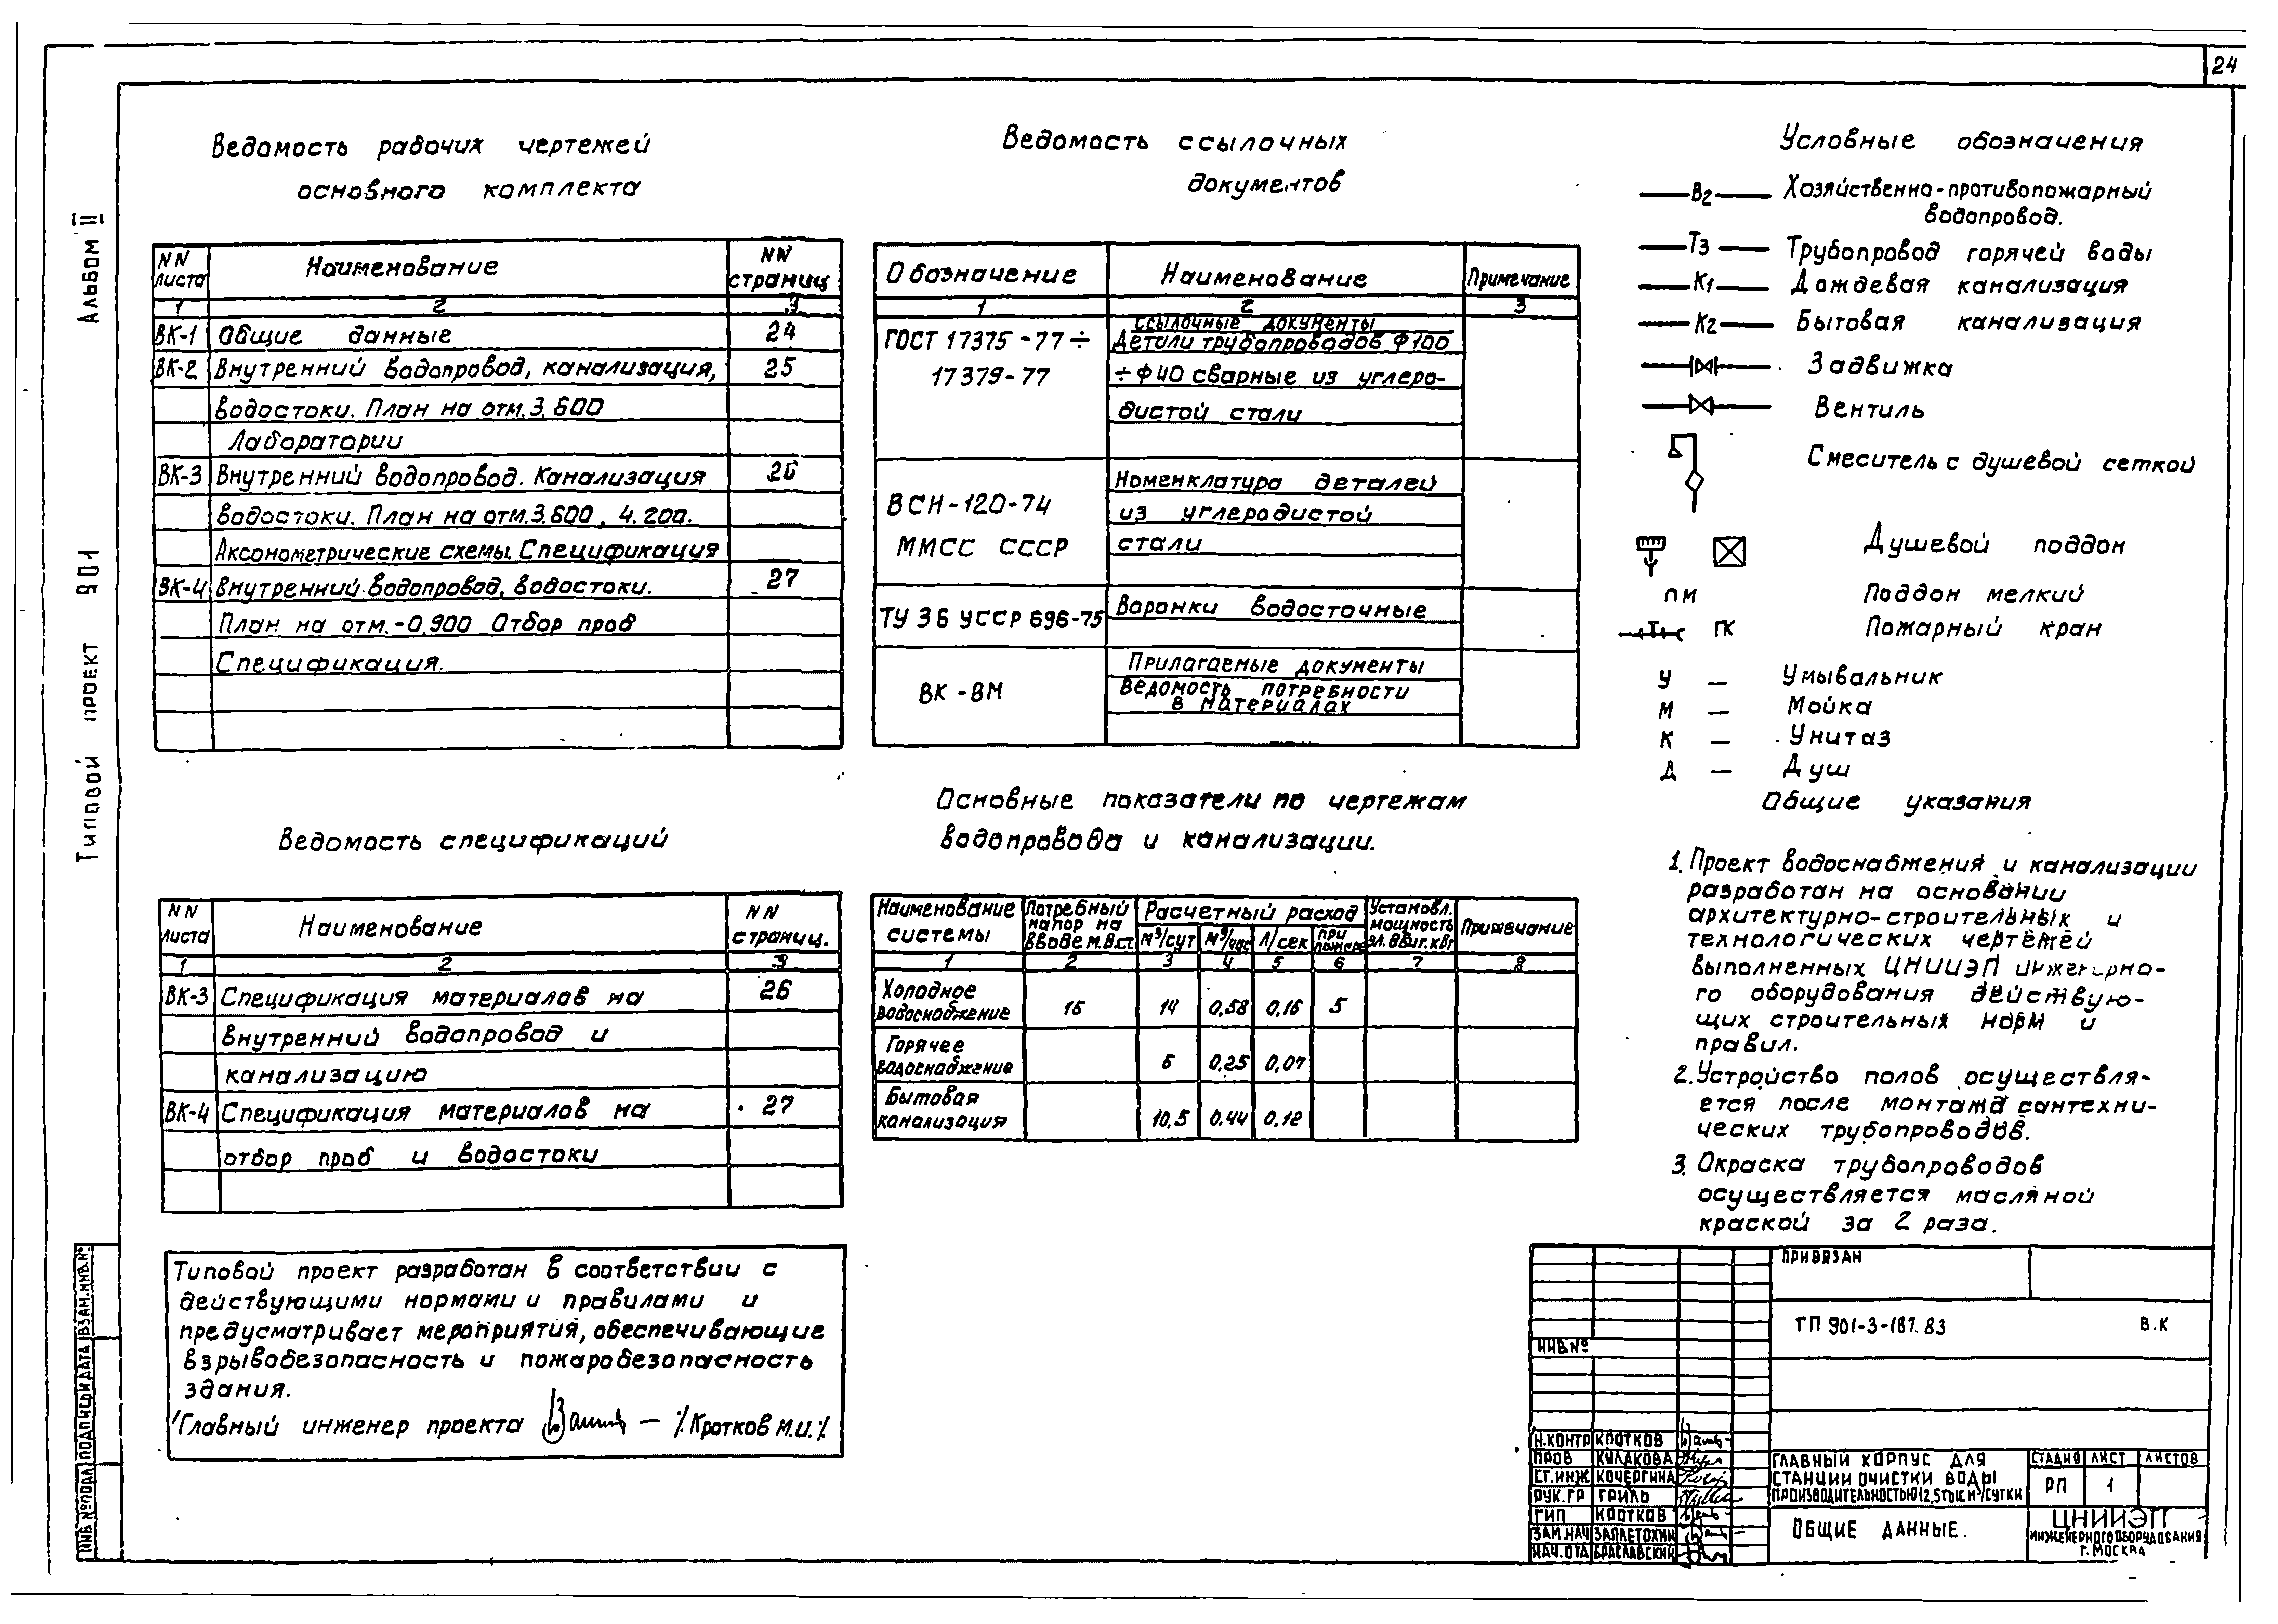 24
Альбом II
Типовой проект 901
Ведомость рабочих чертежей
основного комплекта
NN листа Наименование NN страниц
1 2 3
ВК-1 Общие данные 24
ВК-2 Внутренний водопровод, канализация, 25
водостоки. План на отм. 3.600
Лаборатории
ВК-3 Внутренний водопровод. Канализация 26
водостоки. План на отм. 3.600, 4.200.
Аксонометрические схемы. Спецификация
ВК-4 Внутренний водопровод, водостоки. 27
План на отм. -0.900 Отбор проб
Спецификация.
Ведомость ссылочных
документов
Обозначение Наименование Примечание
1 2 3
Ссылочные документы
ГОСТ 17375-77÷ Детали трубопроводов Ф100
17379-77 ÷Ф40 сварные из углеро-
дистой стали
ВСН-120-74 Номенклатура деталей
из углеродистой
ММСС СССР стали
ТУ 36 УССР 696-75 Воронки водосточные
Прилагаемые документы
ВК-ВМ Ведомость потребности
в материалах
Условные обозначения
В2 Хозяйственно-противопожарный
водопровод.
Т3 Трубопровод горячей воды
К1 Дождевая канализация
К2 Бытовая канализация
Задвижка
Вентиль
Смеситель с душевой сеткой
Душевой поддон
ПМ Поддон мелкий
ПК Пожарный кран
У — Умывальник
М — Мойка
К — Унитаз
Д — Душ
Общие указания
1. Проект водоснабжения и канализации
разработан на основании
архитектурно-строительных и
технологических чертежей
выполненных ЦНИИЭП инженерно-
го оборудования действую-
щих строительных норм и
правил.
2. Устройство полов осуществля-
ется после монтажа сантехни-
ческих трубопроводов.
3. Окраска трубопроводов
осуществляется масляной
краской за 2 раза.
Ведомость спецификаций
NN листа Наименование NN страниц.
1 2 3
ВК-3 Спецификация материалов на 26
внутренний водопровод и
канализацию
ВК-4 Спецификация материалов на 27
отбор проб и водостоки
Основные показатели по чертежам
водопровода и канализации.
Наименование системы Потребный напор на вводе м.в.ст. Расчетный расход Установл. мощность эл.двиг. кВт Примечание
м³/сут м³/час л/сек при пожаре
1 2 3 4 5 6 7 8
Холодное водоснабжение 15 14 0,58 0,16 5
Горячее водоснабжение 6 0,25 0,07
Бытовая канализация 10,5 0,44 0,12
Типовой проект разработан в соответствии с
действующими нормами и правилами и
предусматривает мероприятия, обеспечивающие
взрывобезопасность и пожаробезопасность
здания.
Главный инженер проекта — /.Кротков М.И./.
ИНВ.№ПОДЛ ПОДПИСЬ И ДАТА ВЗАМ.ИНВ.№
ПРИВЯЗАН
ТП 901-3-187.83 В.К
ИНВ.№
Н.КОНТР КРОТКОВ
ПРОВ КУЛАКОВА
СТ.ИНЖ КОЧЕРГИНА
РУК.ГР ГРИЛЬ
ГИП КРОТКОВ
ЗАМ.НАЧ ЗАПЛЕТОХИН
НАЧ.ОТД БРАСЛАВСКИЙ
ГЛАВНЫЙ КОРПУС ДЛЯ
СТАНЦИИ ОЧИСТКИ ВОДЫ
ПРОИЗВОДИТЕЛЬНОСТЬЮ 12,5 ТЫС М³/СУТКИ
СТАДИЯ ЛИСТ ЛИСТОВ
РП 1
ОБЩИЕ ДАННЫЕ.
ЦНИИЭП
ИНЖЕНЕРНОГО ОБОРУДОВАНИЯ
Г. МОСКВА